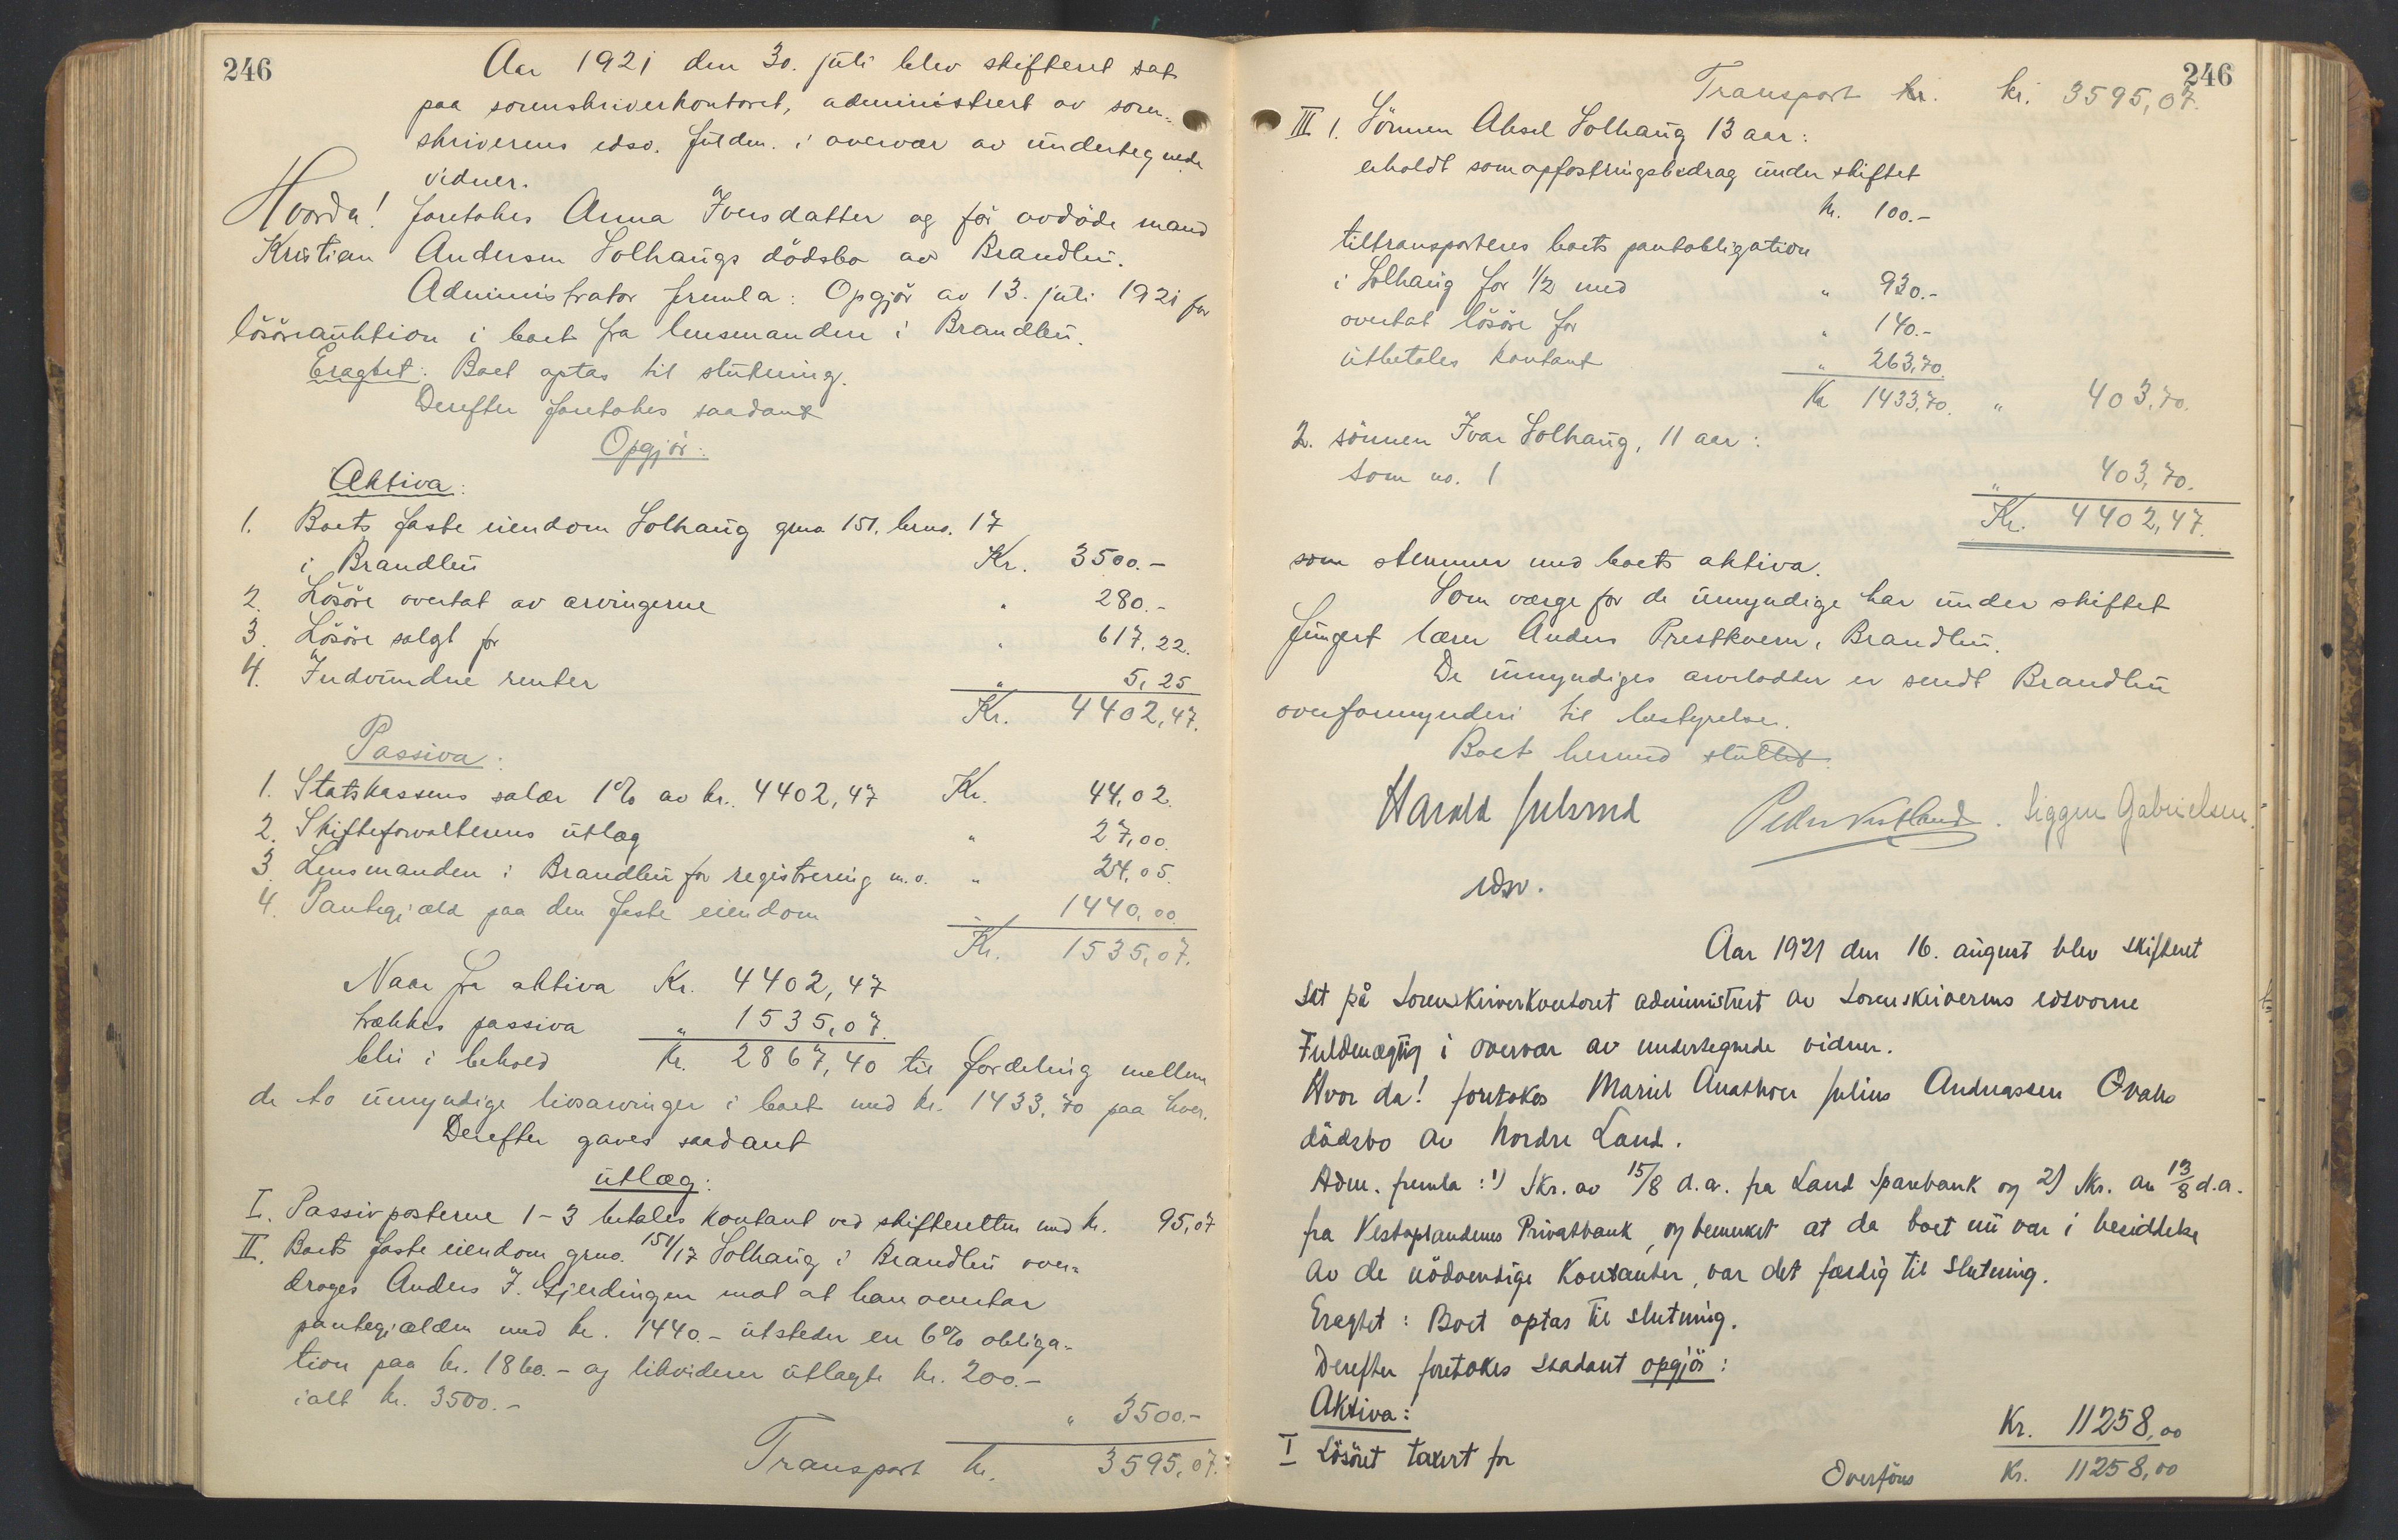 246
Aar 1921 den 30. juli blev skifteret sat
paa sorenskriverkontoret, administrert av soren-
skriverens edsv. fuldm. i overvær av undertegnede
vidner.
Hvorda! foretokes Anna Iversdatter og før avdöde mand
Kristian Andersen Solhaugs dödsbo av Brandbu.
Administrator fremla: Opgjör av 13. juli 1921 for
lösöreauktion i boet fra lensmanden i Brandbu.
Eragtet: Boet optas til slutning.
Derefter foretokes saadant
Opgjör:
Aktiva:
1. Boets faste eiendom Solhaug gno. 151. brno. 17
i Brandbu Kr. 3500.-
2. Lösöre overtat av arvingerne " 280.-
3. Lösöre solgt for " 617.22.
4. Indvundne renter " 5,25
Kr. 4402,47.
Passiva:
1. Statskassens salær 1% av kr. 4402,47 Kr. 44,02.
2. Skifteforvalterens utlæg " 27,00.
3. Lensmanden i Brandbu for registrering m.v. " 24,05.
4. Pantegjæld paa den faste eiendom " 1440,00
Kr. 1535,07.
Naar fra aktiva Kr. 4402,47
trækkes passiva " 1535,07.
blir i behold Kr. 2867,40 til fordeling mellem
de to umyndige livsarvinger i boet med kr. 1433,70 paa hver.
Derefter gaves saadant
utlæg:
I. Passivposterne 1-3 betales kontant ved skifteretten med kr. 95,07
II. Boets faste eiendom grno. 151/17 Solhaug i Brandbu over-
drages Anders I. Gjerdingen mot at han overtar
pantegjælden med kr. 1440.- utsteder en 6% obliga-
tion paa kr. 1860.- og likviderer utlagte kr. 200.-
ialt kr. 3500.- " 3500.-
Transport kr. 3595,07.
246
Transport kr. kr. 3595,07.
III 1. Sönnen Aksel Solhaug 13 aar:
erholdt som opfostringsbidrag under skiftet
kr. 100.-
tiltransporteres boets pantobligation
i Solhaug for 1/2 med " 930.-
overtat lösöre for " 140.-
utbetales kontant " 263,70.
Kr 1433,70. " 403,70.
2. sönnen Ivar Solhaug, 11 aar:
som no. 1 " 403,70.
Kr. 4402,47.
som stemmer med boets aktiva.
Som værge for de umyndige har under skiftet
fungert lærer Anders Prestkvern, Brandbu.
De umyndiges arvelodder er sendt Brandbu
overformynderi til bestyrelse.
Boet hermed sluttet.
Harald Juls Peder Siggen Gabrielsen.
edsv.
Aar 1921 den 16. august blev skifteret
sat på sorenskriverkontoret administrert av sorenskriverens edsvorne
Fuldmægtig i overvær av undertegnede vidner.
Hvor da! foretokes Mariel Anathon Julius Andreassen Ovahs
dödsbo av Nordre Land.
Adm. fremla: 1) Skr. av 15/8 d.a. fra Land Sparebank og 2) Skr. av 13/8 d.a.
fra Vestoplandenes Privatbank, og bemerket at da boet nu var i besiddelse
av de nödvendige kontanter, var det færdig til slutning.
Eragtet: Boet optas til slutning.
Derefter foretokes saadant opgjör:
Aktiva:
I Lösöret taxert for Kr. 11258,00
Overföres Kr. 11258,00